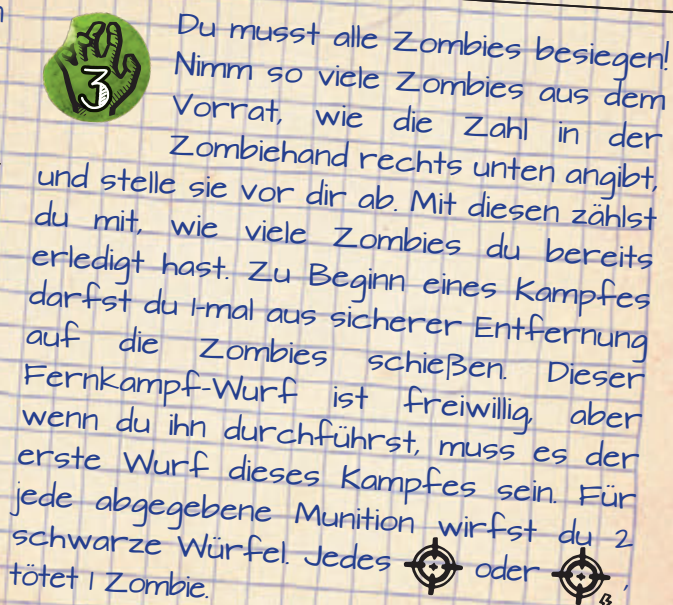 3
Du musst alle Zombies besiegen!
Nimm so viele Zombies aus dem
Vorrat, wie die Zahl in der
Zombiehand rechts unten angibt,
und stelle sie vor dir ab. Mit diesen zählst
du mit, wie viele Zombies du bereits
erledigt hast. Zu Beginn eines Kampfes
darfst du 1-mal aus sicherer Entfernung
auf die Zombies schießen. Dieser
Fernkampf-Wurf ist freiwillig, aber
wenn du ihn durchführst, muss es der
erste Wurf dieses Kampfes sein. Für
jede abgegebene Munition wirfst du 2
schwarze Würfel. Jedes oder ,
tötet 1 Zombie.